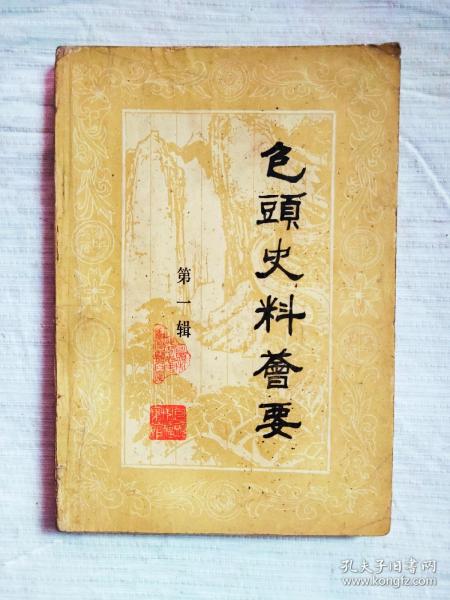 包頭史料薈要
第一辑
孔夫子旧书网
www.kongfz.com